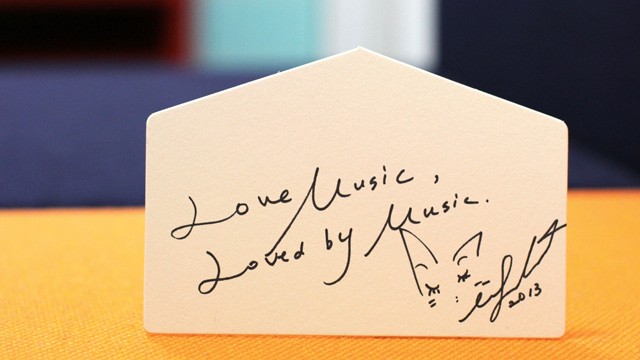 Love Music,
Loved by Music.
2013